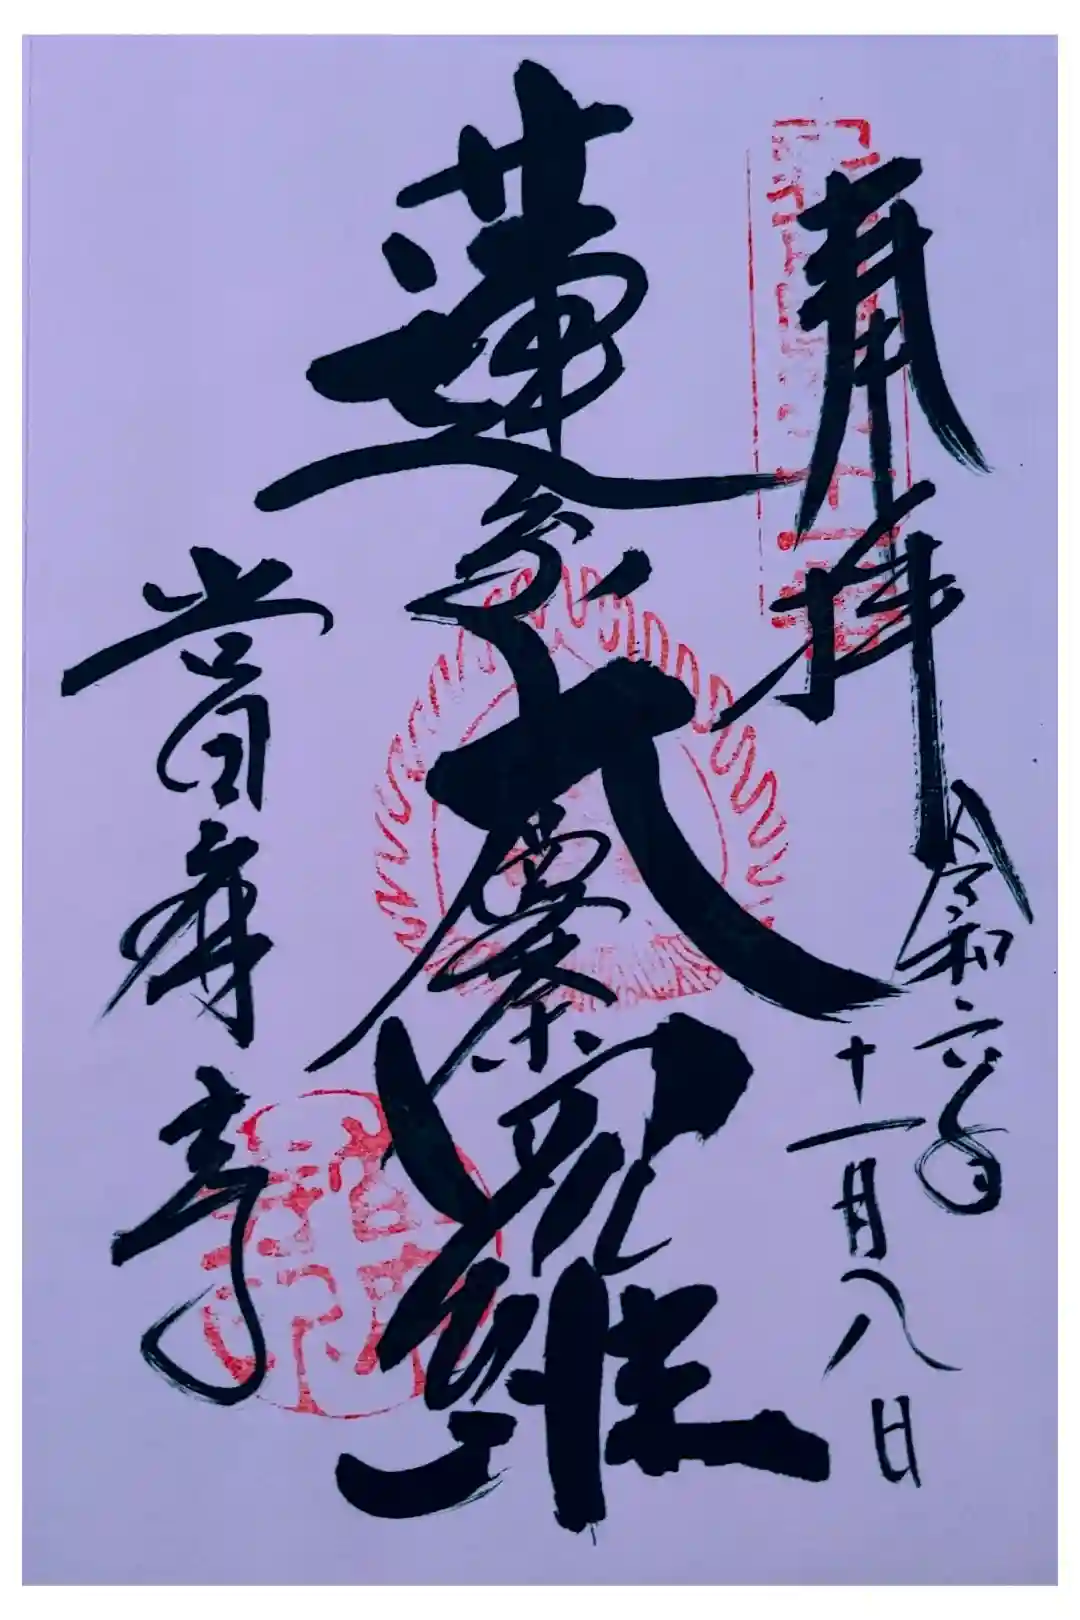 奉拝
令和六年
十一月八日
蓮糸大曼荼羅
當麻寺